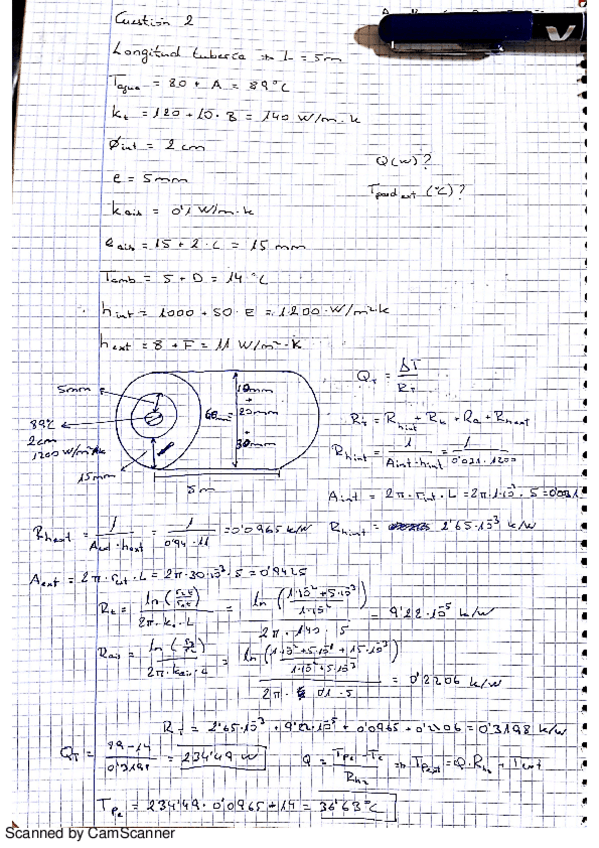 Cuestion 2
Longitud tuberia → L = 5m
Tagua = 80 + A = 89°C
kt = 120 + 10 · B = 140 W/m·k
Øint = 2 cm
Q(w)?
e = 5mm
Tpared ext (°C)?
kais = 0'1 W/m·k
eais = 15 + 2 · C = 15 mm
Tamb = 5 + D = 14 °C
hint = 1000 + 50 · E = 1200 W/m²k
hext = 8 + F = 11 W/m²·k
QT = ΔT / RT
5mm
10mm
+
60 = 20mm
+
30mm
89°C
2cm
1200 W/m²k
15mm
5m
RT = Rhint + Rk + Ra + Rhext
Rhint = 1 / Aint·hint = 1 /
Aint = 2π · rint · L = 2π·1·10⁻² · 5 =
Rhint = 2'65·10⁻³ k/w
Rhext = 1 / Aext · hext = 1 / 0'94 · 11 = 0'0965 k/w
Aext = 2π · rext · L = 2π·30·10⁻³·5 = 0'9425
Rt = ln( ) / 2π · kt · L = ln (1·10⁻² + 5·10⁻³ / 1·10⁻²) / 2π · 140 · 5 = 9'22·10⁻⁵ k/w
Rais = ln( ) / 2π · kais · L = ln (1·10⁻² + 5·10⁻³ + 15·10⁻³ / 1·10⁻² + 5·10⁻³) / 2π · 01 · 5 = 0'2206 k/w
RT = 2'65·10⁻³ + 9'22·10⁻⁵ + 0'0965 + 0'2206 = 0'3198 k/w
QT = 89-14 / 0'3198 = 234'49 W
Q = Tpe - Te / Rhe ⇒ Tpext = Q · Rhe + Text
Tpe = 234'49 · 0'0965 + 14 = 36'63°C
Scanned by CamScanner